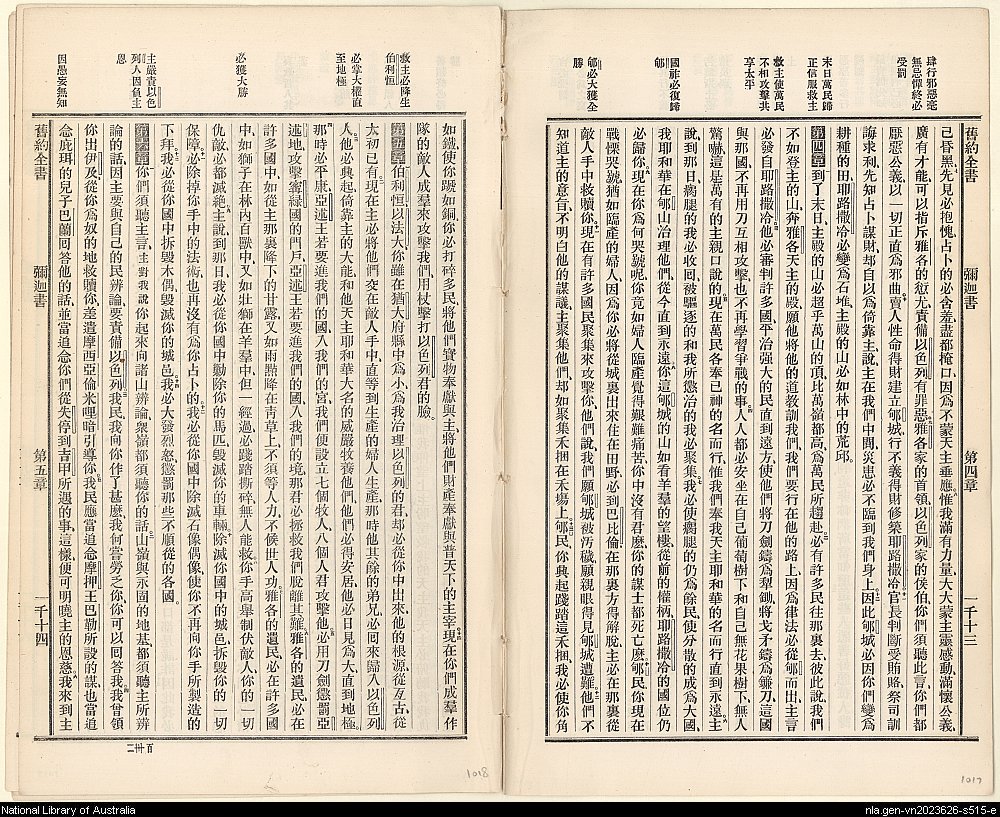 肆行邪惡毫
無忌憚終必
受罰
末日萬民歸
正信服救主
救主使萬民
不相攻擊共
享太平
國祚必復歸
郇
郇必大獲全
勝
舊約全書 彌迦書 第四章 一千十三
已昏黑先見必抱愧占卜的必含羞盡都掩口因爲不蒙天主垂應惟我滿有力量大大蒙主靈感動滿懷公義
廣有才能可以指斥雅各的愆尤責備以色列有罪惡雅各家的首領以色列家的侯伯你們須聽此言你們都
厭惡公義以一切正直爲邪曲賣人性命得財建立郇城行不義得財修築耶路撒冷官長判斷受賄賂祭司訓
誨求利先知占卜謀財却自以爲倚靠主說主在我們中間災患必不臨到我們身上因此郇城必因你們變爲
耕種的田耶路撒冷必變爲石堆主殿的山必如林中的荒邱
第四章到了末日主殿的山必超乎萬山的頂比萬嶺都高爲萬民所趨赴必有許多民往那裏去彼此說我們
不如登主的山奔雅各天主的殿願他將他的道教訓我們我們要行在他的路上因爲律法必從郇而出主言
必發自耶路撒冷他必審判許多國平治强大的民直到遠方使他們將刀劍鑄爲犁鋤將戈矛鑄爲鐮刀這國
與那國不再用刀互相攻擊也不再學習爭戰的事人人都必安坐在自己葡萄樹下和自己無花果樹下無人
驚嚇這是萬有的主親口說的現在萬民各奉己神的名而行惟我們奉我天主耶和華的名而行直到永遠主
說到那日瘸腿的我必收回被驅逐的和我所懲治的我必聚集我必使瘸腿的仍爲餘民使分散的成爲大國
我耶和華在郇山治理他們從今直到永遠你這郇城的山如看羊羣的望樓從前的權柄耶路撒冷的國位仍
必歸你現在你爲何哭號呢你竟如婦人臨產覺得艱難痛苦你中沒有君麽你的謀士都死亡麽郇民你現在
戰慄哭號猶如臨產的婦人因爲你必將從城裏出來住在田野必到巴比倫在那裏方得解脫主必在那裏從
敵人手中救贖你現在有許多國民聚集來攻擊你他們說我們願郇城被汚穢願親眼得見郇城遭難他們不
知道主的意旨不明白他的謀議主聚集他們却如聚集禾捆在禾場上郇民你興起踐踏這禾捆我必使你角
1017
救主必降生
伯利恒
必掌大權直
至地極
必獲大勝
主嚴責以色
列人因負主
恩
因愚妄無知
如鐵使你蹏如銅你必打碎多民將他們寶物奉獻與主將他們財產奉獻與普天下的主宰現在你們成羣作
隊的敵人成羣來攻擊我們用杖擊打以色列君的臉
第五章伯利恒以法大你雖在猶大府縣中爲小爲我治理以色列的君却必從你中出來他的根源從亙古從
太初已有現在主必將他們交在敵人手中直等到生產的婦人生產那時他其餘的弟兄必回來歸入以色列
人他必興起倚靠主的大能和他天主耶和華大名的威嚴牧養他們他們必得安居他必日見爲大直到地極
那時必平康亞述王若要進我們的國入我們的宮我們便設立七個牧人八個人君攻擊他必用刀劍懲罰亞
述地攻擊寗綠國的門戶亞述王若要進我們的國入我們的境那君必拯救我們脫離其難雅各的遺民必在
許多國中如從主那裏降下的甘露又如雨點降在青草上不須等人力不候世人功雅各的遺民必在許多國
中如獅子在林內百獸中又如壯獅在羊羣中但一經過必踐踏撕碎無人能救你手高舉制伏敵人你的一切
仇敵必都滅絕主說到那日我必從你國中勦除你的馬匹毀滅你的車輛除滅你國中的城邑拆毀你的一切
保障必除掉你手中的法術也再沒有爲你占卜的我必從你國中除滅石像偶像使你不再向你手所製造的
下拜我必從你國中拆毀木偶毀滅你的城邑我必大發烈怒懲罰那些不順從的各國
第六章你們須聽主言主對我說你起來向諸山辨論衆嶺都須聽你的話山嶺與永固的地基都須聽主所辨
論的話因主要與自己的民辨論要責備以色列我民我向你作了甚麽我何嘗勞乏你你可以回答我我曾領
你出伊及從你爲奴的地救贖你差遣摩西亞倫米哩暗引導你我民應當追念摩押王巴勒所設的謀也當追
念庇珥的兒子巴蘭回答他的話並當追念你們從失停到吉甲所遇的事這樣便可明曉主的恩慈我來到主
舊約全書 彌迦書 第五章 一千十四
1018
National Library of Australia
nla.gen-vn2023626-s515-e